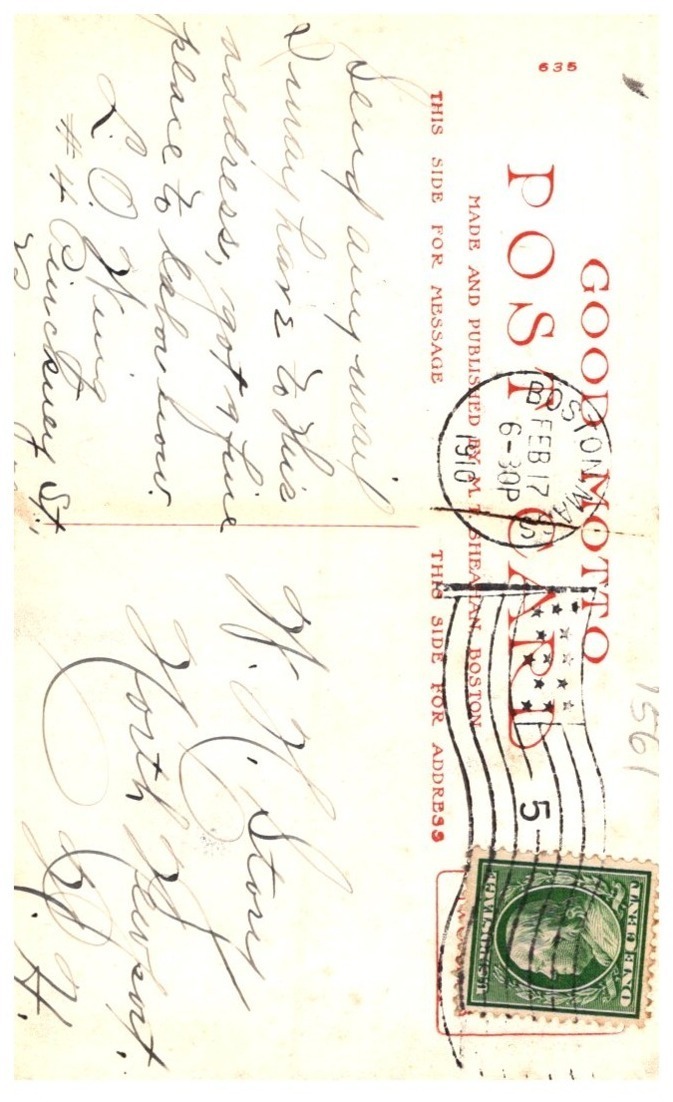 635
GOOD MOTTO
POST CARD
MADE AND PUBLISHED BY M. T. SHEAHAN BOSTON
THIS SIDE FOR MESSAGE
THIS SIDE FOR ADDRESS
BOSTON, MASS
FEB 17
6-30P
1910
5
1561
U.S. POSTAGE
ONE CENT
Send any mail
I may have to this
address, got a fine
place to labor now.
L. O. Wing
#4 Pinckney St.,
W. H. Story
North Newport.
N. H.